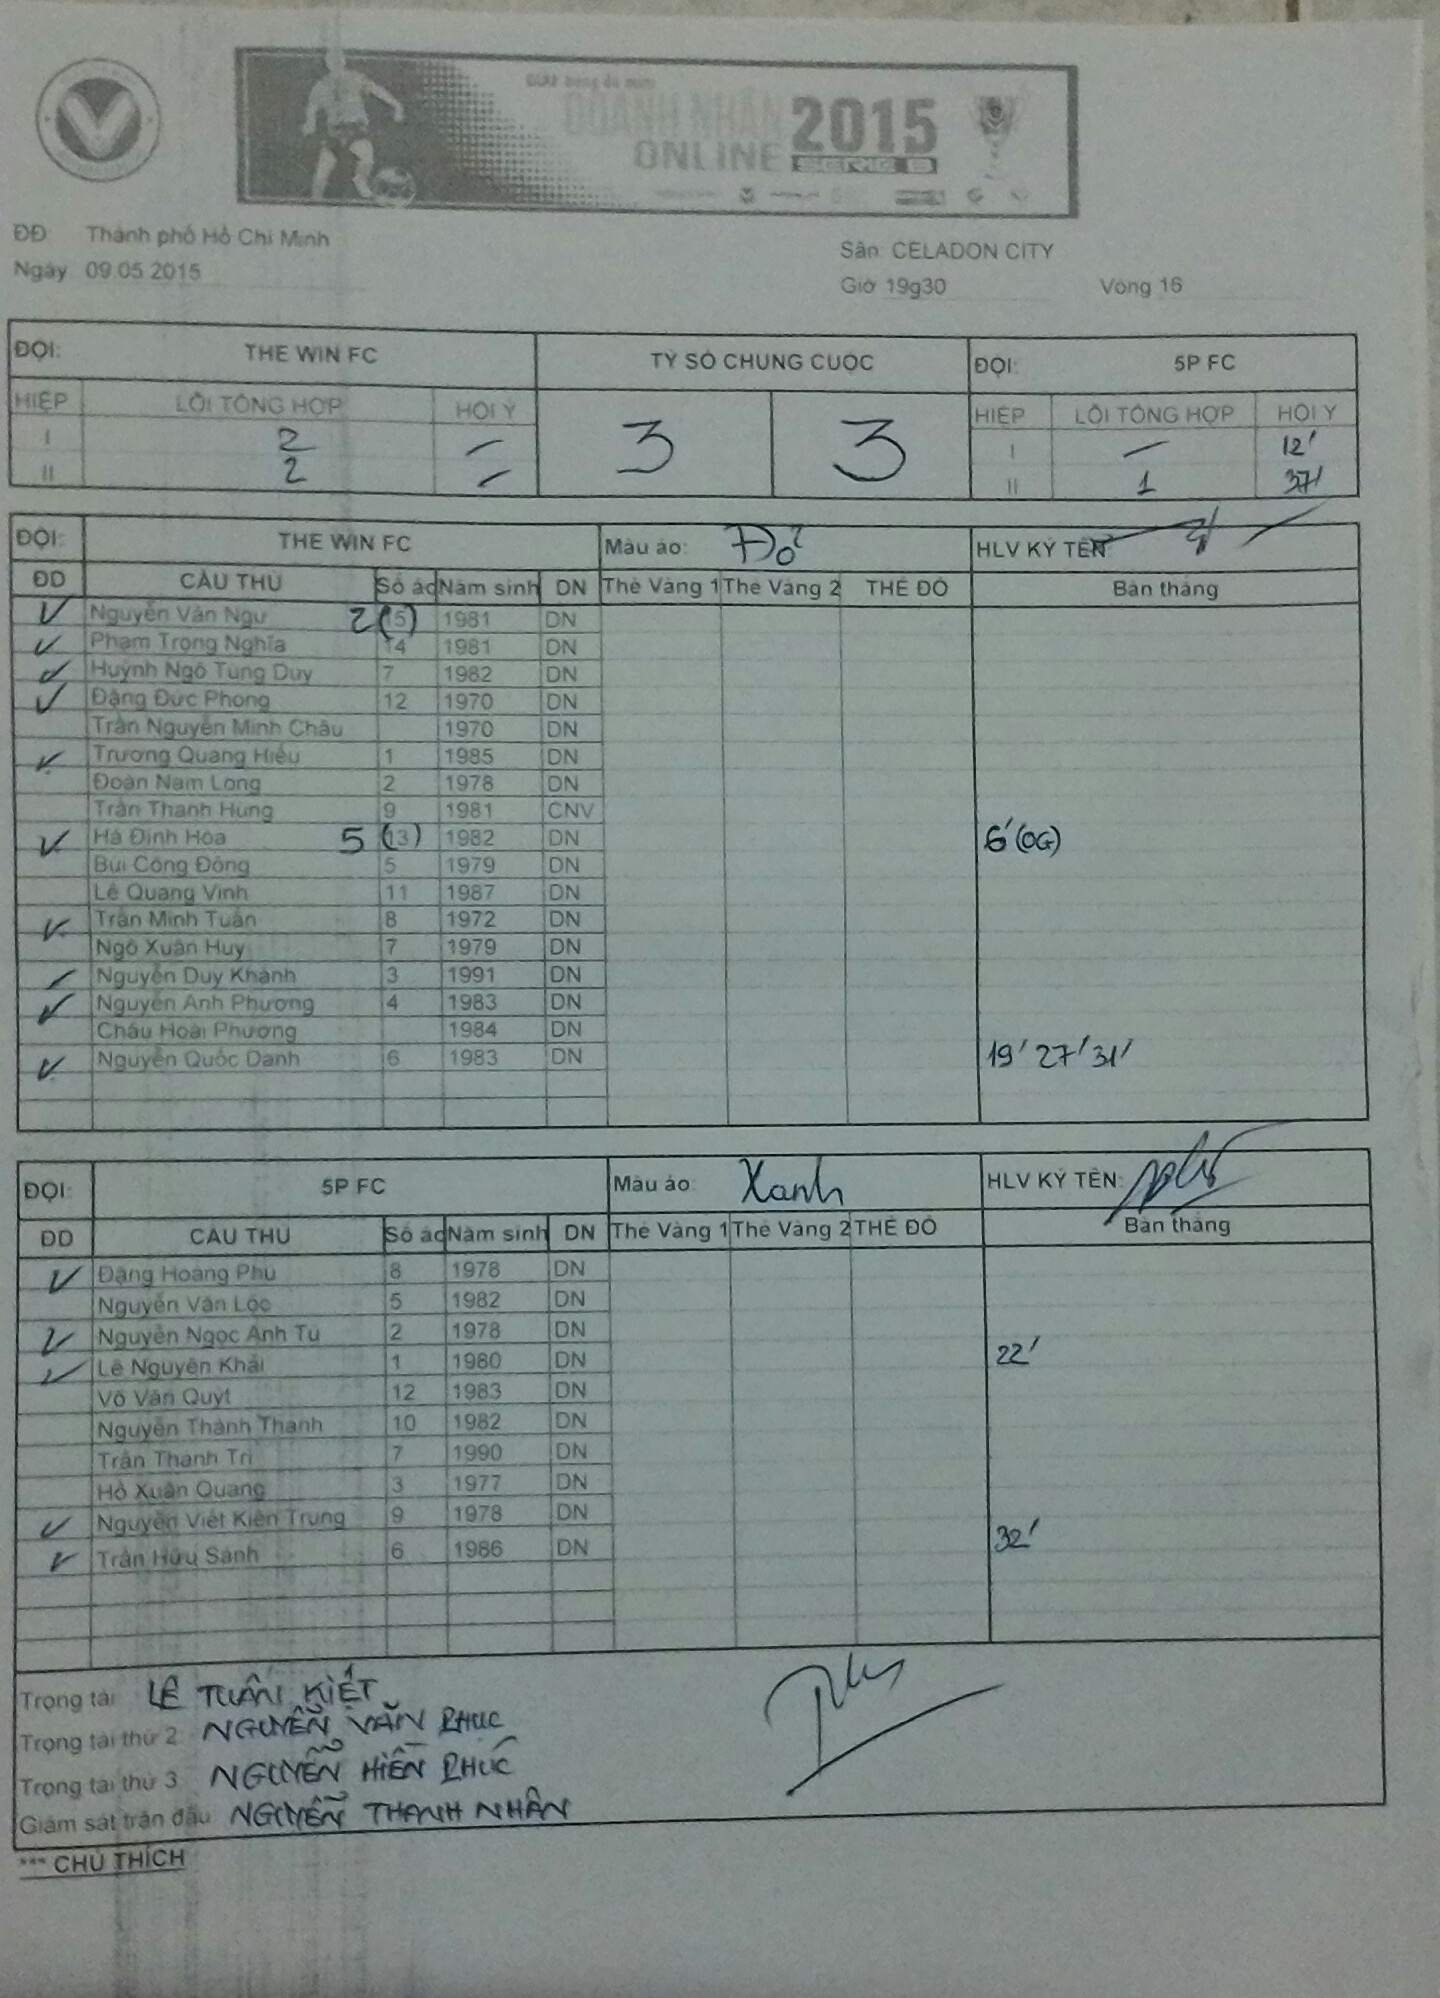 DOANH NHÂN 2015
ONLINE SERIE B
ĐĐ Thành phố Hồ Chí Minh
Sân: CELADON CITY
Ngày 09.05.2015
Giờ 19g30 Vòng 16
ĐỘI: THE WIN FC TỶ SỐ CHUNG CUỘC ĐỘI: 5P FC
HIỆP LỖI TỔNG HỢP HỘI Ý 3 3 HIỆP LỖI TỔNG HỢP HỘI Ý
I 2 – I – 12'
II 2 – II 1 37'
ĐỘI: THE WIN FC Màu áo: Đỏ HLV KÝ TÊN
ĐD CẦU THỦ Số áo Năm sinh DN Thẻ Vàng 1 Thẻ Vàng 2 THẺ ĐỎ Bàn thắng
✓ Nguyễn Văn Ngụ 2 (15) 1981 DN
✓ Phạm Trọng Nghĩa 14 1981 DN
✓ Huỳnh Ngô Tùng Duy 7 1982 DN
✓ Đặng Đức Phong 12 1970 DN
Trần Nguyễn Minh Châu 1970 DN
✓ Trương Quang Hiếu 1 1985 DN
Đoàn Nam Long 2 1978 DN
Trần Thanh Hùng 9 1981 CNV
✓ Hà Đình Hòa 5 (13) 1982 DN 6' (OG)
Bùi Công Đông 5 1979 DN
Lê Quang Vinh 11 1987 DN
✓ Trần Minh Tuấn 8 1972 DN
Ngô Xuân Huy 7 1979 DN
✓ Nguyễn Duy Khánh 3 1991 DN
✓ Nguyễn Anh Phương 4 1983 DN
Châu Hoài Phương 1984 DN
✓ Nguyễn Quốc Danh 6 1983 DN 19' 27' 31'
ĐỘI: 5P FC Màu áo: Xanh HLV KÝ TÊN:
ĐD CẦU THỦ Số áo Năm sinh DN Thẻ Vàng 1 Thẻ Vàng 2 THẺ ĐỎ Bàn thắng
✓ Đặng Hoàng Phú 8 1978 DN
Nguyễn Văn Lộc 5 1982 DN
✓ Nguyễn Ngọc Anh Tú 2 1978 DN
✓ Lê Nguyên Khải 1 1980 DN 22'
Võ Văn Quýt 12 1983 DN
Nguyễn Thành Thanh 10 1982 DN
Trần Thanh Trí 7 1990 DN
Hồ Xuân Quang 3 1977 DN
✓ Nguyễn Viết Kiên Trung 9 1978 DN
✓ Trần Hữu Sánh 6 1986 DN 32'
Trọng tài LÊ TUẤN KIỆT
Trọng tài thứ 2 NGUYỄN VĂN PHÚC
Trọng tài thứ 3 NGUYỄN HIỀN PHÚC
Giám sát trận đấu NGUYỄN THANH NHÂN
*** CHÚ THÍCH